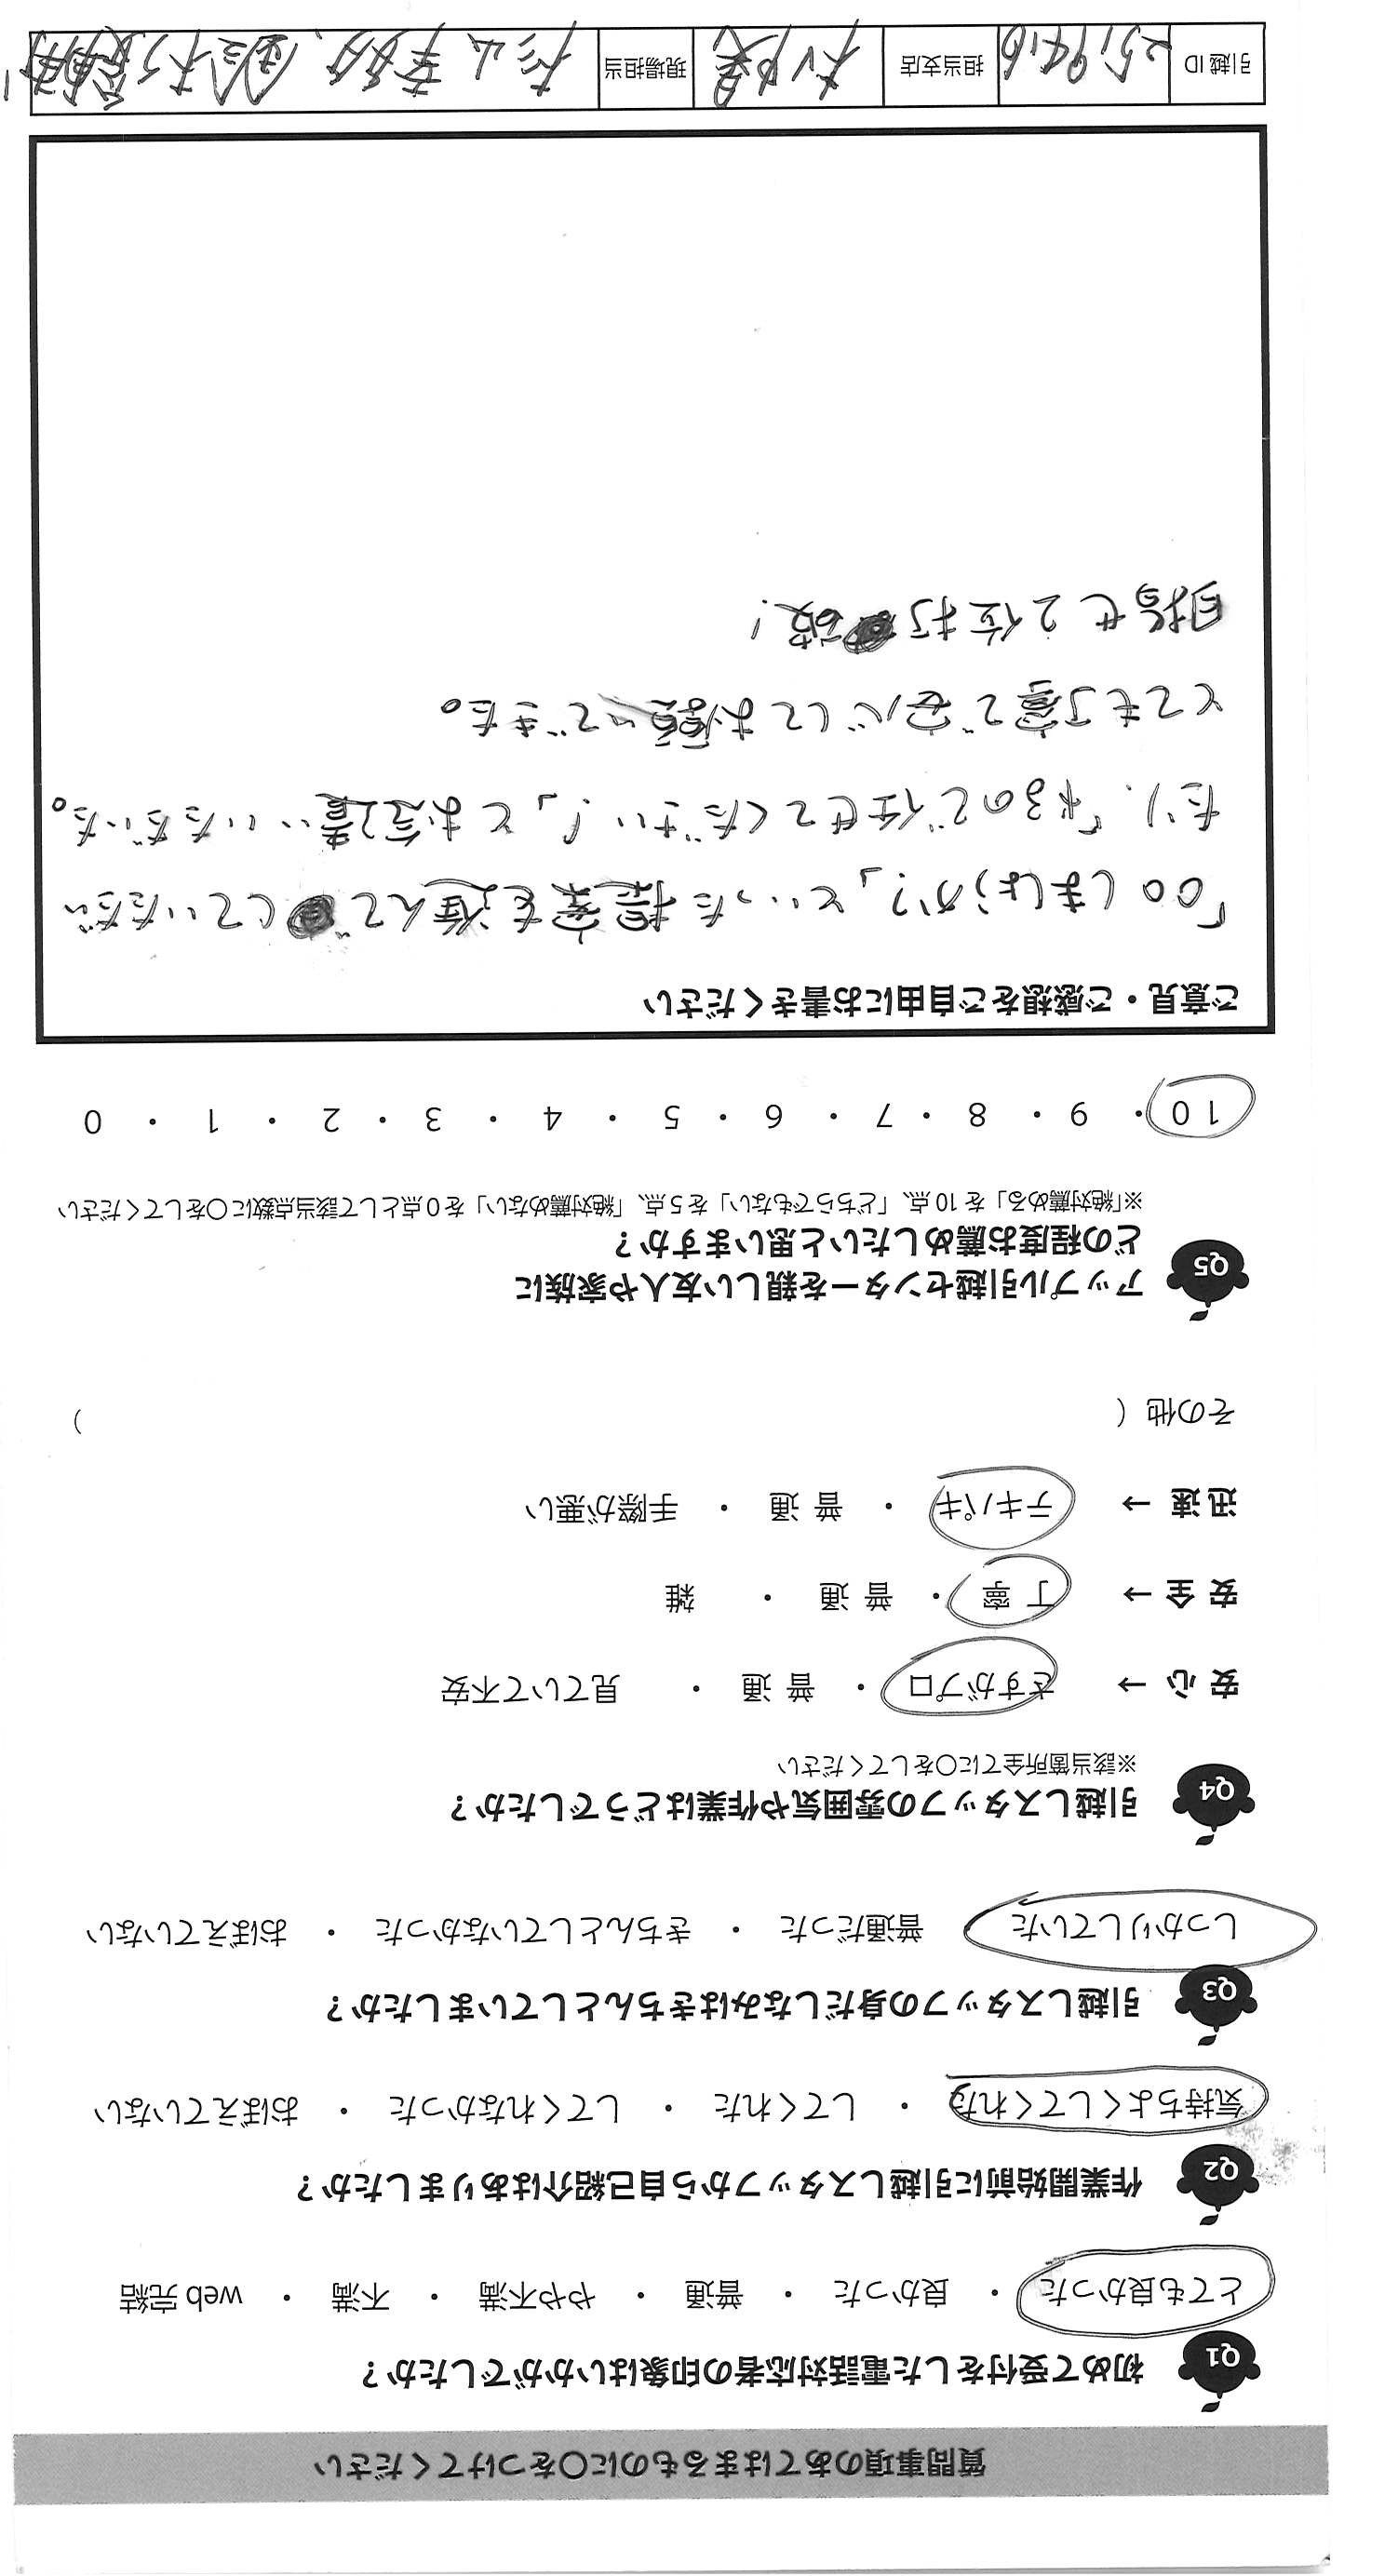 質問事項のあてはまるものに○をつけてください
Q1 初めて受付をした電話対応者の印象はいかがでしたか？
とても良かった ・ 良かった ・ 普通 ・ やや不満 ・ 不満 ・ web 完結
Q2 作業開始前に引越しスタッフから自己紹介はありましたか？
気持ちよくしてくれた ・ してくれた ・ してくれなかった ・ おぼえていない
Q3 引越しスタッフの身だしなみはきちんとしていましたか？
しっかりしていた 普通だった ・ きちんとしていなかった ・ おぼえていない
Q4 引越しスタッフの雰囲気や作業はどうでしたか？
※該当箇所全てに○をしてください
安 心 → さすがプロ ・ 普 通 ・ 見ていて不安
安 全 → 丁 寧 ・ 普 通 ・ 雑
迅 速 → テキパキ ・ 普 通 ・ 手際が悪い
その他（ ）
Q5 アップル引越センターを親しい友人や家族に
どの程度お薦めしたいと思いますか？
※「絶対薦める」を 10 点、「どちらでもない」を 5 点、「絶対薦めない」を 0 点として該当点数に○をしてください
10 ・ 9 ・ 8 ・ 7 ・ 6 ・ 5 ・ 4 ・ 3 ・ 2 ・ 1 ・ 0
ご意見・ご感想をご自由にお書きください
「○○しましょうか？」といった提案を進んでしていただい
たり、「やるので任せてください！」とお気遣いいただいた。
とても丁寧で安心してお願いできた。
目指せ2位打破！
引越 ID 2519416 担当支店 現場担当 杉山